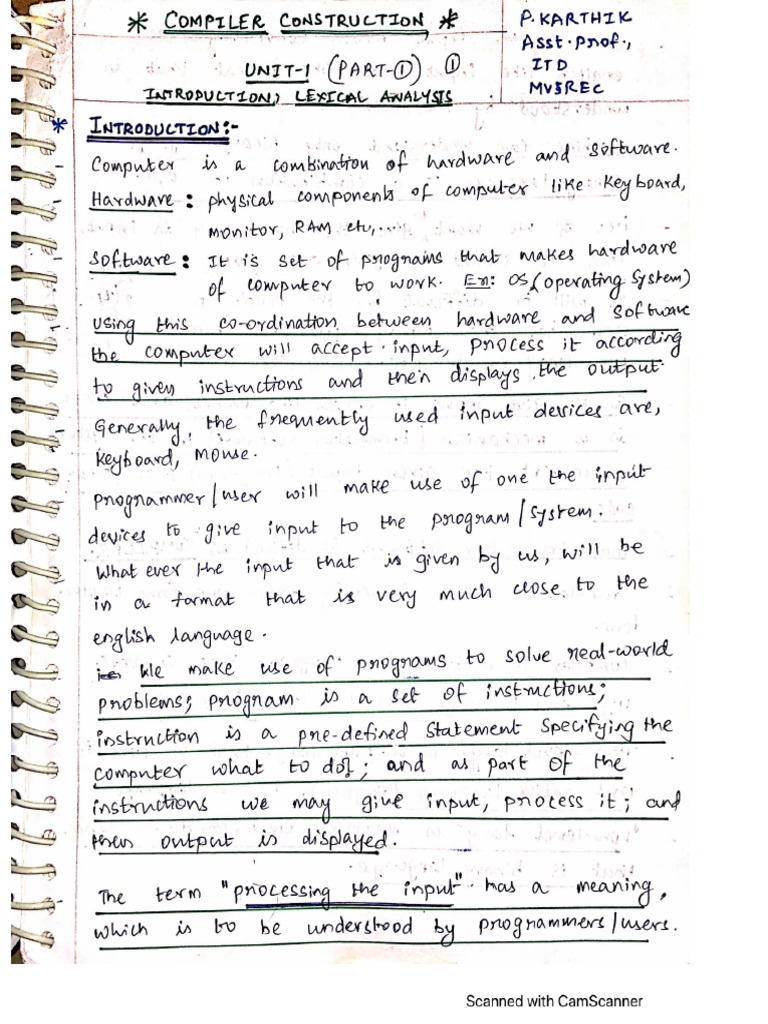 * COMPILER CONSTRUCTION *
P. KARTHIK
Asst. Prof.,
ITD
MVSREC
UNIT-1 (PART-①) ①
INTRODUCTION, LEXICAL ANALYSIS
* INTRODUCTION:-
Computer is a combination of hardware and software.
Hardware: physical components of computer like keyboard,
monitor, RAM etc,...
Software: It is set of programs that makes hardware
of computer to work. Ex: OS (operating System)
using this co-ordination between hardware and software
the computer will accept input, process it according
to given instructions and then displays the output.
Generally, the frequently used input devices are,
keyboard, mouse.
programmer/user will make use of one the input
devices to give input to the program/system.
What ever the input that is given by us, will be
in a format that is very much close to the
english language.
We make use of programs to solve real-world
problems; program is a set of instructions;
instruction is a pre-defined statement specifying the
computer what to do; and as part of the
instructions we may give input, process it; and
then output is displayed.
The term "processing the input" has a meaning,
which is to be understood by programmers/users.
Scanned with CamScanner